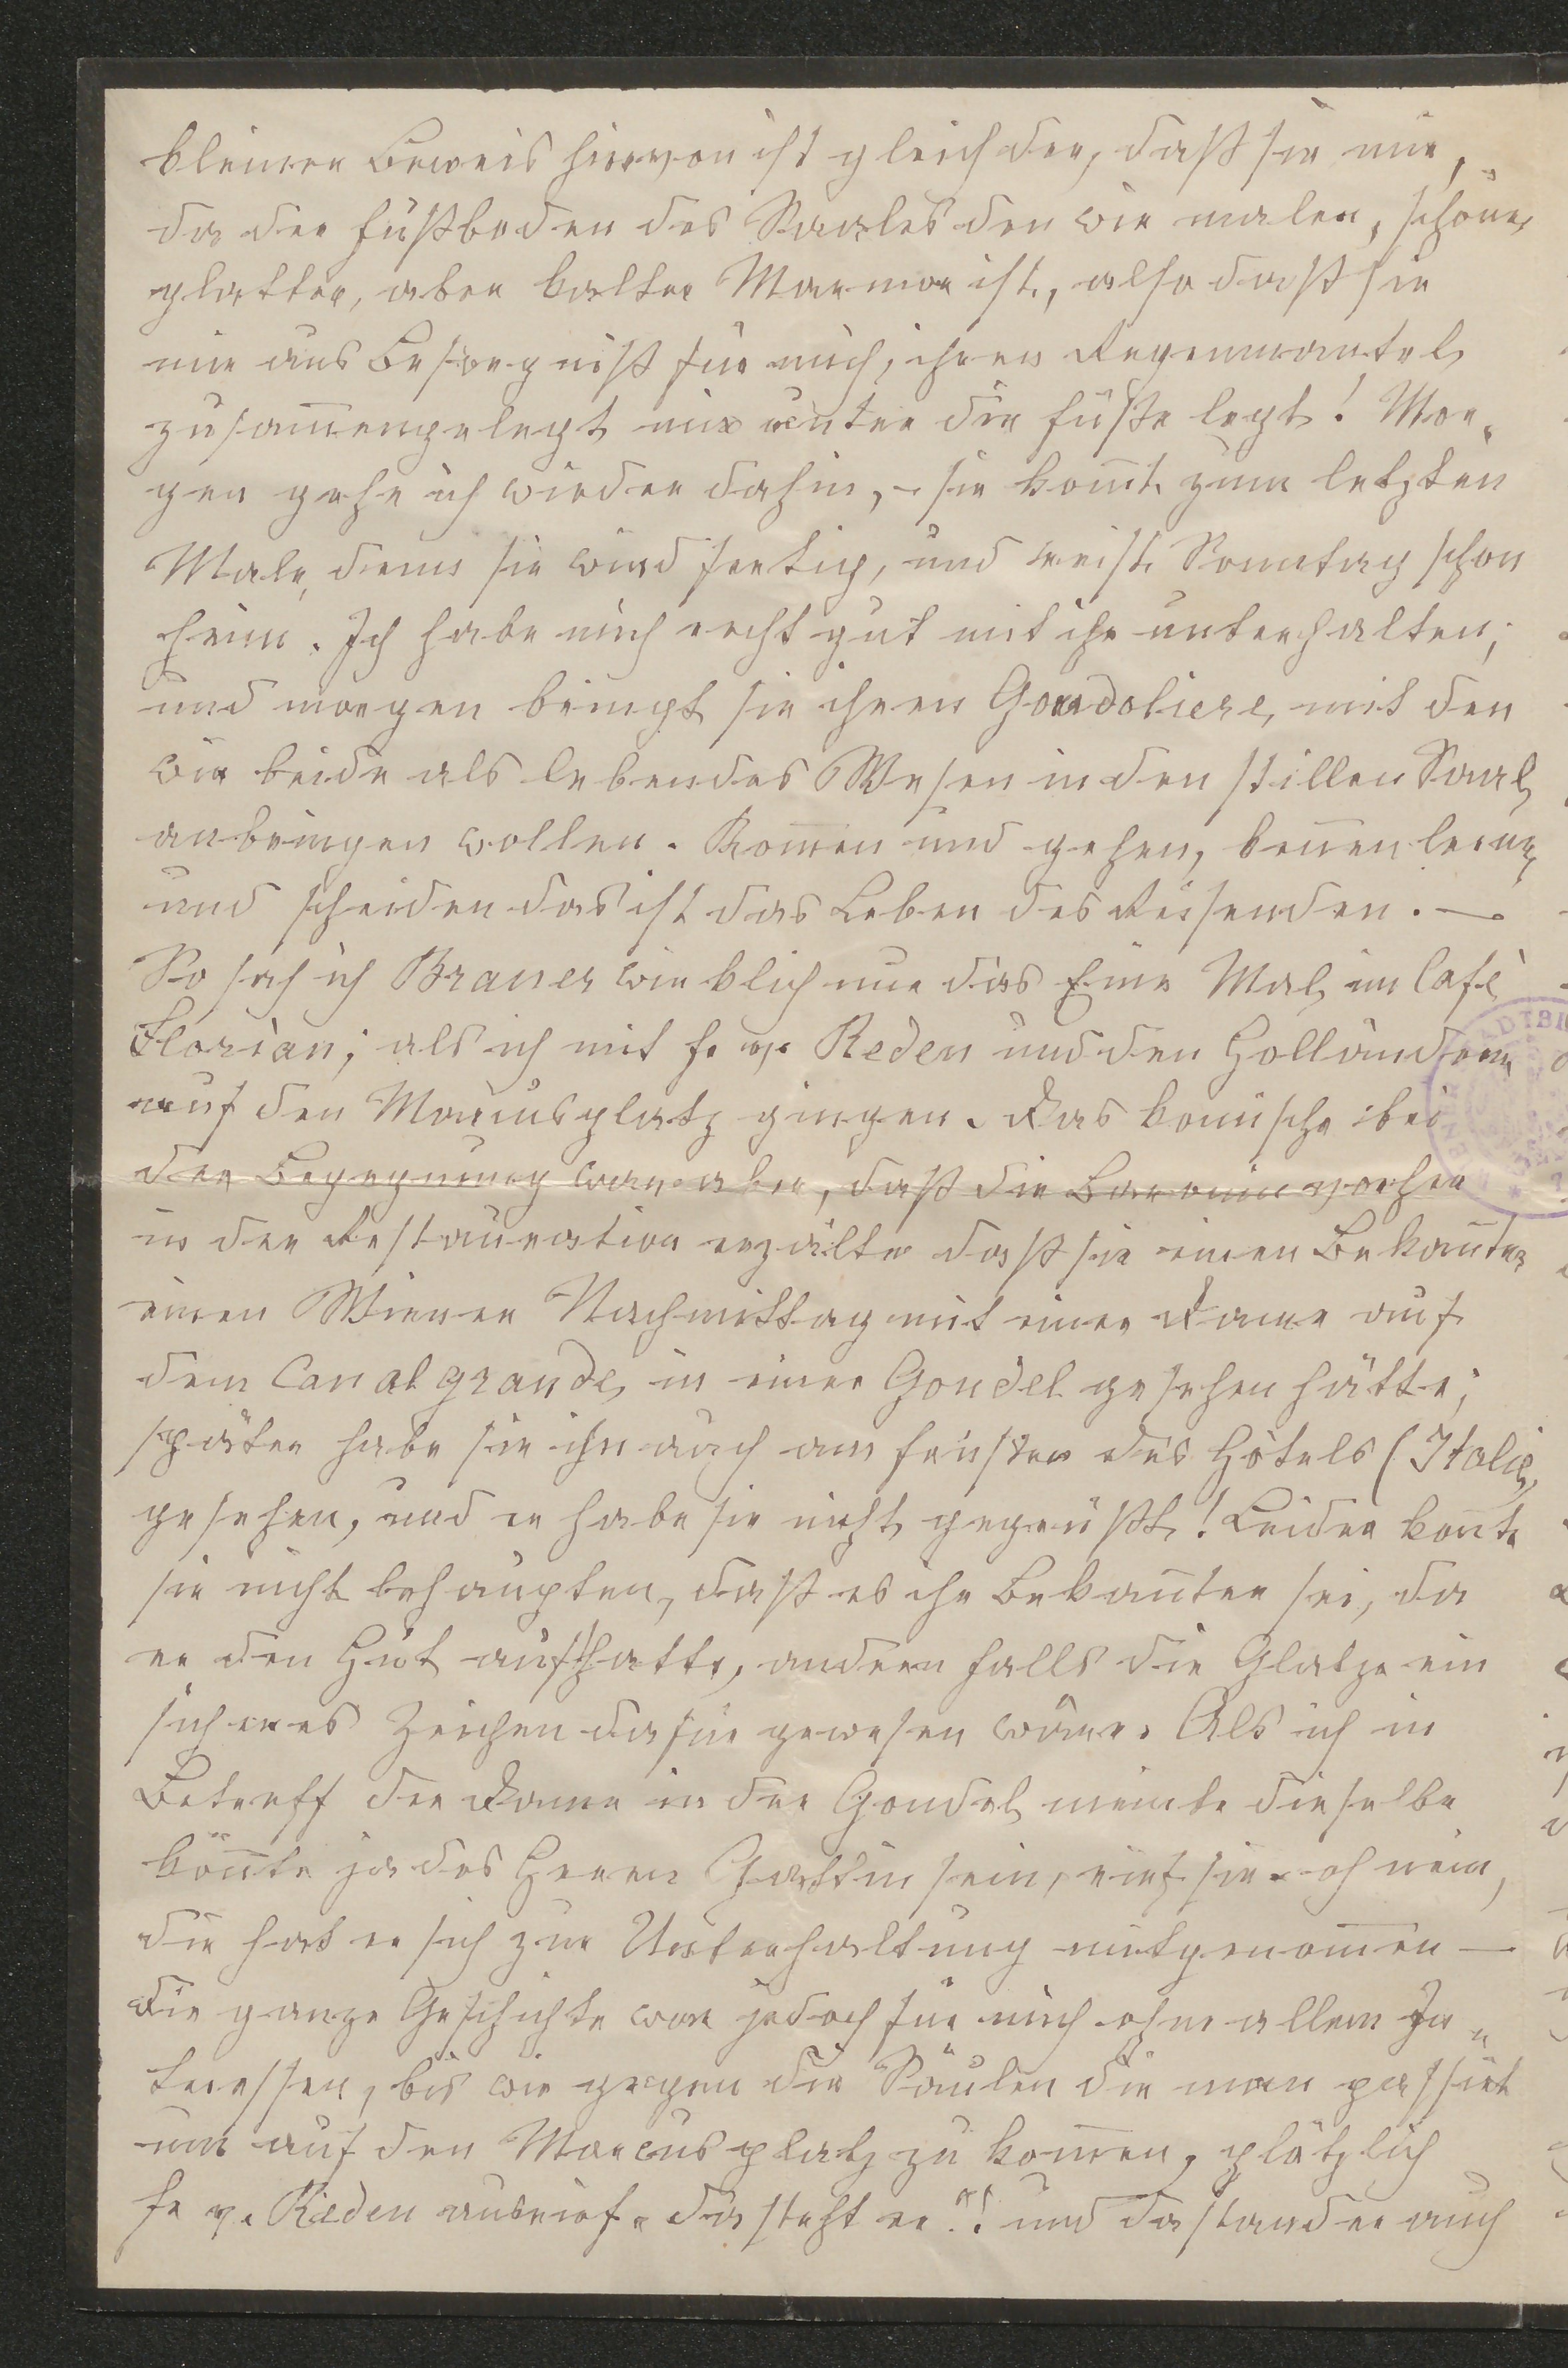 kleiner Beweis hiervon ist gleich der, daß sie mir,
da der Fußboden des Saales den wir malen, schöner
glatter, aber kalter Marmor ist, also daß sie
mir aus Besorgniß für mich, ihren Regenmantel
zusam̅engelegt mir unter die Füße legt! Mor-
gen gehe ich wieder dahin, – sie kom̅t zum letzten
Male, denn sie wird fertig, und reist Sonntag schon
heim. Ich habe mich recht gut mit ihr unterhalten;
und morgen bringt sie ihren Gondoliere, mit den
wir beide als lebendes Wesen in den stillen Saal
anbringen wollen. Kom̅en und gehen, ken̅en lernen
und scheiden das ist das Leben des Reisenden. —
So sah ich Braner wirklich nur das Eine Mal im Café
Florian; als ich mit Fr v. Reden und den Holländern
auf den Marcusplatz gingen. Das komische bei
der Begegnung war aber, daß die Baronin vorher
in der Restauration erzälte daß sie einen Bekan̅ten
einen Wiener Nachmittag mit einer Dame auf
dem Canal grande, in einer Gondel gesehen hätte;
später habe sie ihn auch am Fenster des Hôtels (Italie)
gesehen, und er habe sie nicht gegrüßt! Leider kon̅te
sie nicht behaupten, daß es ihr Bekan̅ter sei, da
er den Hut aufhatte, andern falls die Glatze ein
sicheres Zeichen dafür gewesen wäre. Als ich in
Betreff der Dame in der Gondel meinte dieselbe
kön̅te ja des Herrn Gattin sein, rief sie – oh nein,
die hat er sich zur Unterhaltung mitgenom̅en —
Die ganze Geschichte war jedoch für mich ohne allem In-
teressen, bis wir gegen die Säulen die man passirt
um auf den Marcusplatz zu kom̅en, plötzlich
Fr v. Reden ausrief „da steht er"! und da stand er auch